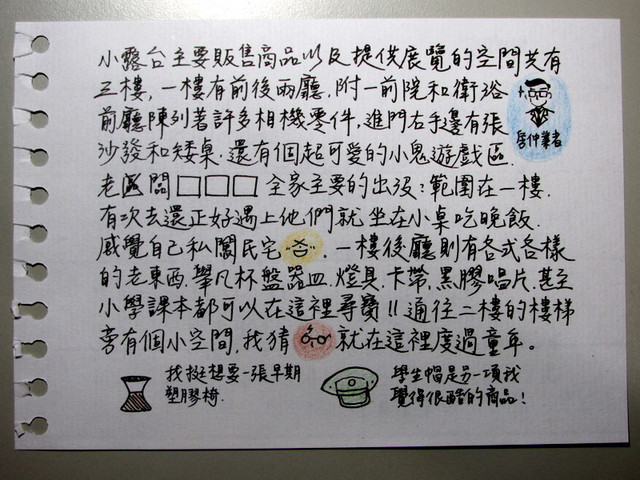 小露台主要販售商品以及提供展覽的空間共有
三樓,一樓有前後兩廳.附一前院和衛浴
前廳陳列著許多相機零件,進門右手邊有張
沙發和矮桌.還有個超可愛的小鬼遊戲區.
老闆□□□全家主要的出沒:範圍在一樓.
有次去還正好遇上他們就坐在小桌吃晚飯.
感覺自己私闖民宅.一樓後廳則有各式各樣
的老東西.舉凡杯盤器皿.燈具.卡帶.黑膠唱片.甚至
小學課本都可以在這裡尋寶!!通往二樓的樓梯
旁有個小空間,我猜就在這裡度過童年。
我挺想要一張早期
塑膠椅.
學生帽是另一項我
覺得很酷的商品!